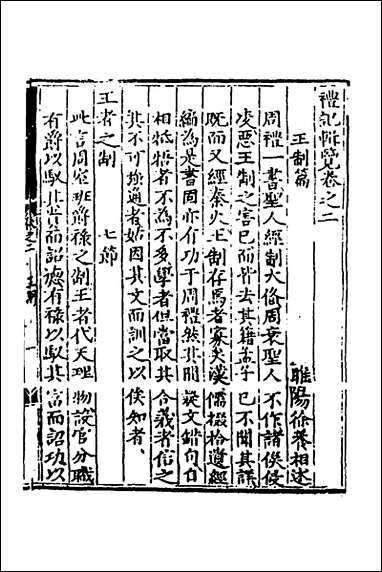 禮記輯覽卷之二
王制篇　睢陽徐養相述
周禮一書聖人經制大條周衰聖人不作諸侯侵
凌惡王制之害已而皆去其籍孟子已不聞其詳
既而又經秦火王制存焉者寡矣漢儒掇拾遺經
編為是書固亦有功于周禮然其間疑文錯句自
相牴牾者不為不多學者但當取其合義者信之
其不可強通者姑因其文而訓之以俟知者
王者之制　七節
此言周室班爵祿之制王者代天理物設官分職
有爵以馭其貴而詔德有祿以馭其富而詔功以